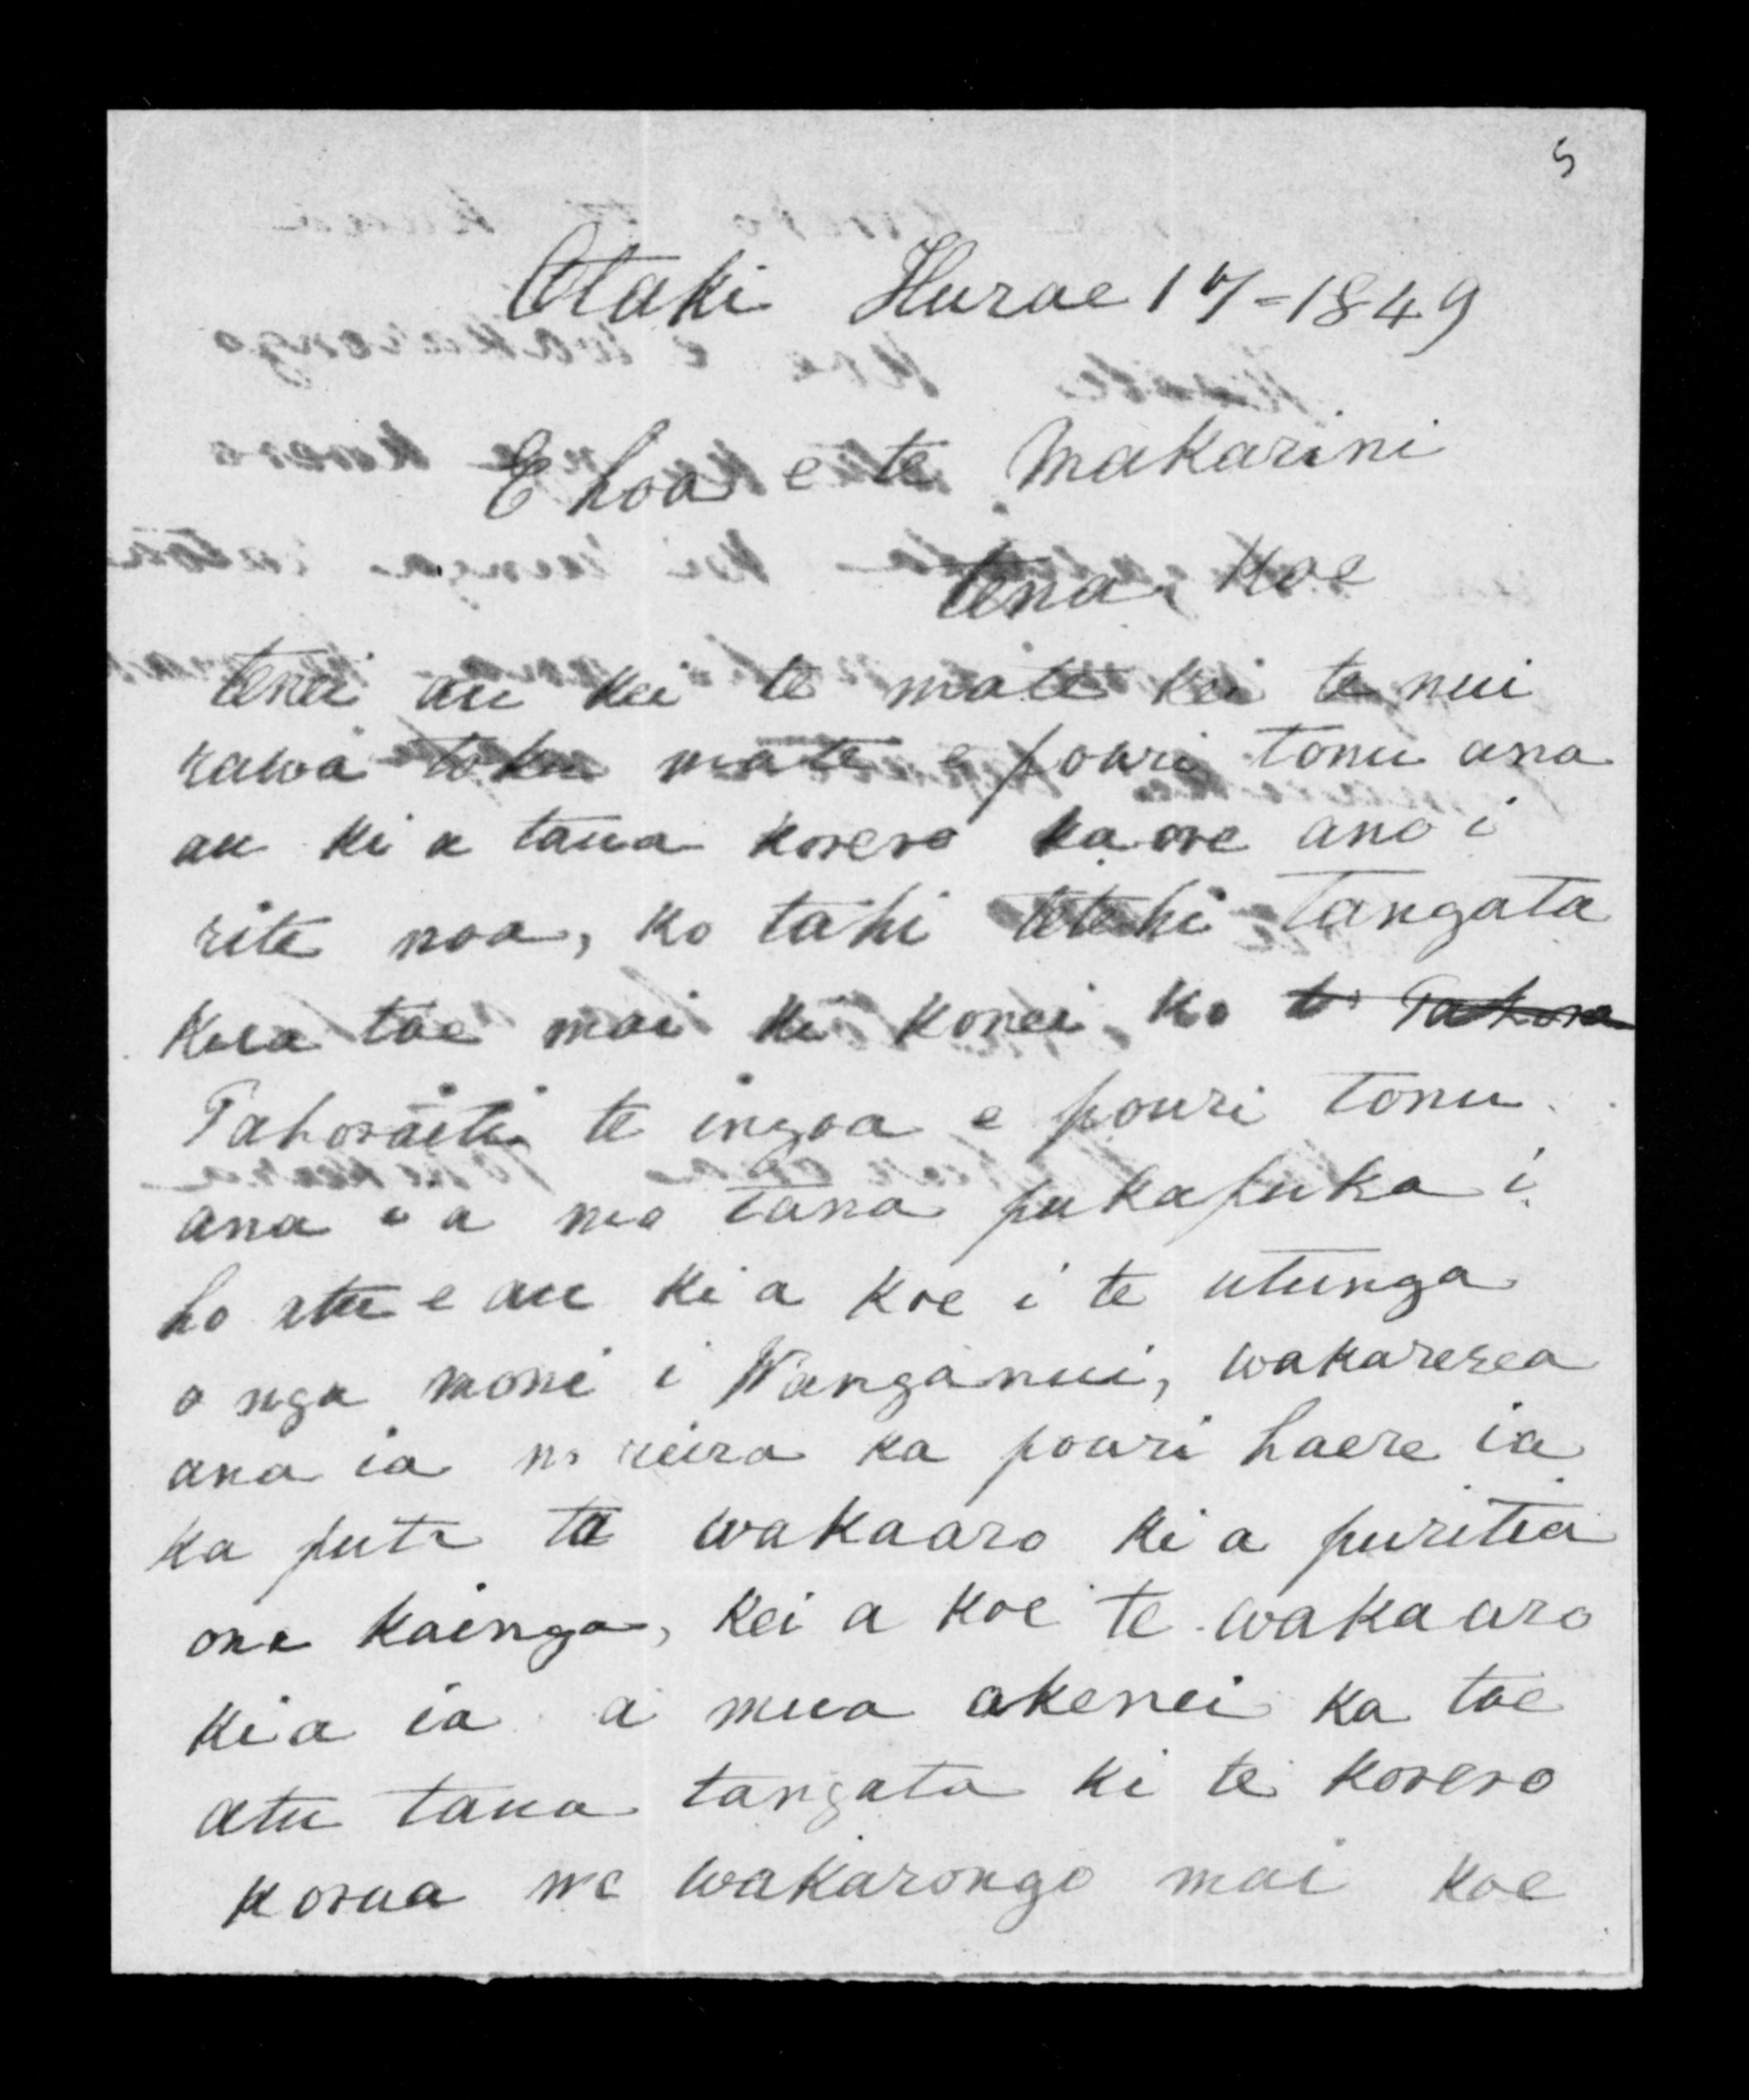 5
Otaki Hurae 17-1849
E hoa e te Makarini
tena, koe
tenei au kei te mate kei te nui
rawa toku mate e pouri tonu ana
au ki a taua korero kaore ano i
rite noa, ko tahi tetehi tangata
kua tae mai ki konei, ko te Tahora
Tahoraiti te ingoa e pouri tonu
ana i a mo tana pukapuka i
ho atu e au ki a koe i te utunga
o nga moni i Wanganui, wakarerea
ana ia no reira ka pouri haere ia
ka puta te wakaaro ki a puritia
ona kainga, kei a koe te wakaaro
kia ia a mua akenei ka tae
atu taua tangata ki te korero
korua me wakarongo mai koe